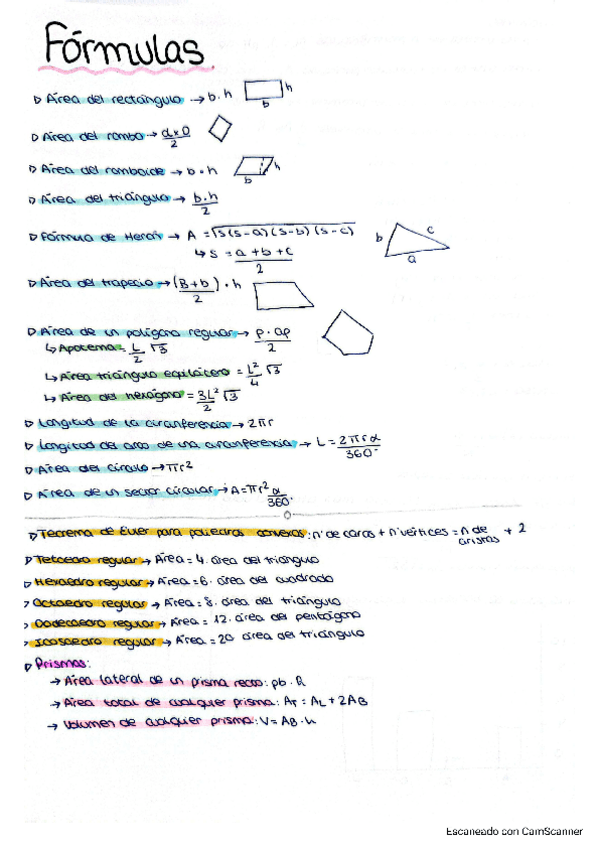 Fórmulas
▷ Área del rectángulo → b·h h b
▷ Área del rombo → dxD/2
▷ Área del romboide → b·h h b
▷ Área del triángulo → b·h/2
▷ Fórmula de Herón → A = √s(s-a)(s-b)(s-c) b c a
↳ s = a+b+c/2
▷ Área del trapecio → (B+b/2)·h
▷ Área de un polígono regular → p·ap/2
↳ Apotema = L/2 √3
↳ Área triángulo equilátero = L²/4 √3
↳ Área del hexágono = 3L²/2 √3
▷ Longitud de la circunferencia → 2πr
▷ Longitud del arco de una circunferencia → L = 2πrα/360°
▷ Área del círculo → πr²
▷ Área de un sector circular → A = πr² α/360°
▷ Teorema de Euler para poliedros convexos: nº de caras + nºvértices = n de aristas + 2
▷ Tetraedro regular → Área = 4. área del triángulo
▷ Hexaedro regular → Área = 6. área del cuadrado
▷ Octaedro regular → Área = 8. área del triángulo
▷ Dodecaedro regular → Área = 12. área del pentágono
▷ Icosaedro regular → Área = 20 área del triángulo
▷ Prismas:
→ Área lateral de un prisma recto: pb·h
→ Área total de cualquier prisma: AT = AL + 2AB
→ Volumen de cualquier prisma: V = AB·h
Escaneado con CamScanner